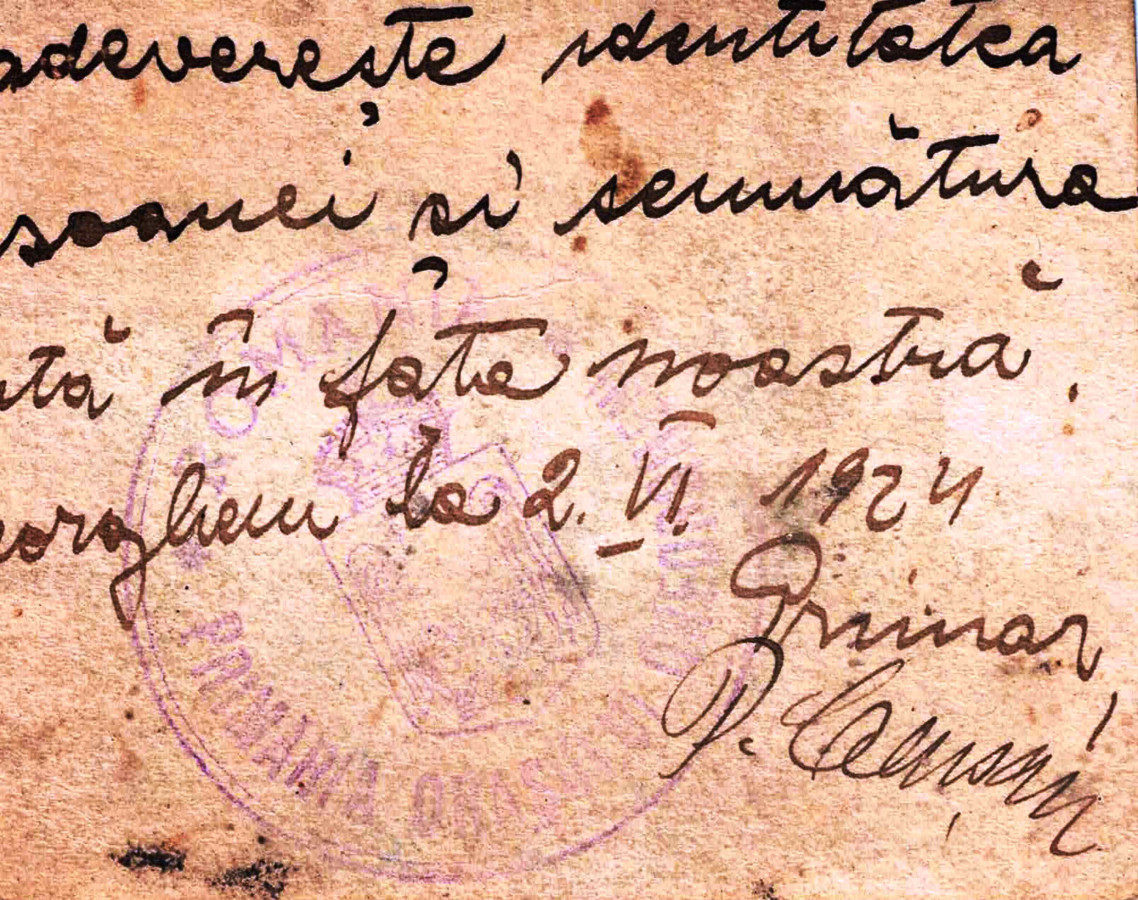 adevereşte identitatea
soanei şi semnătura
ată în faţa noastră.
eorgheni la 2. VI. 1924
Primar,
P.
ROMANIA
PRIMARIA ORASULUI